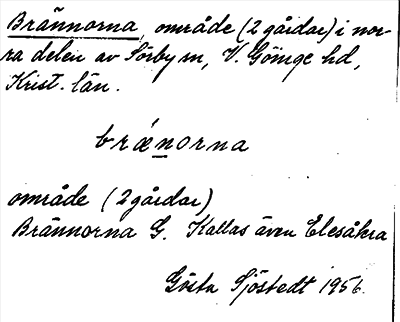 Brännorna, område (2 gårdar) i nor-
ra delen av Sörby sn, V. Göinge hd,
Krist. län.
brænorna
område (2 gårdar)
Brännorna G. Kallas även Elesåkra
Gösta Sjöstedt 1956.